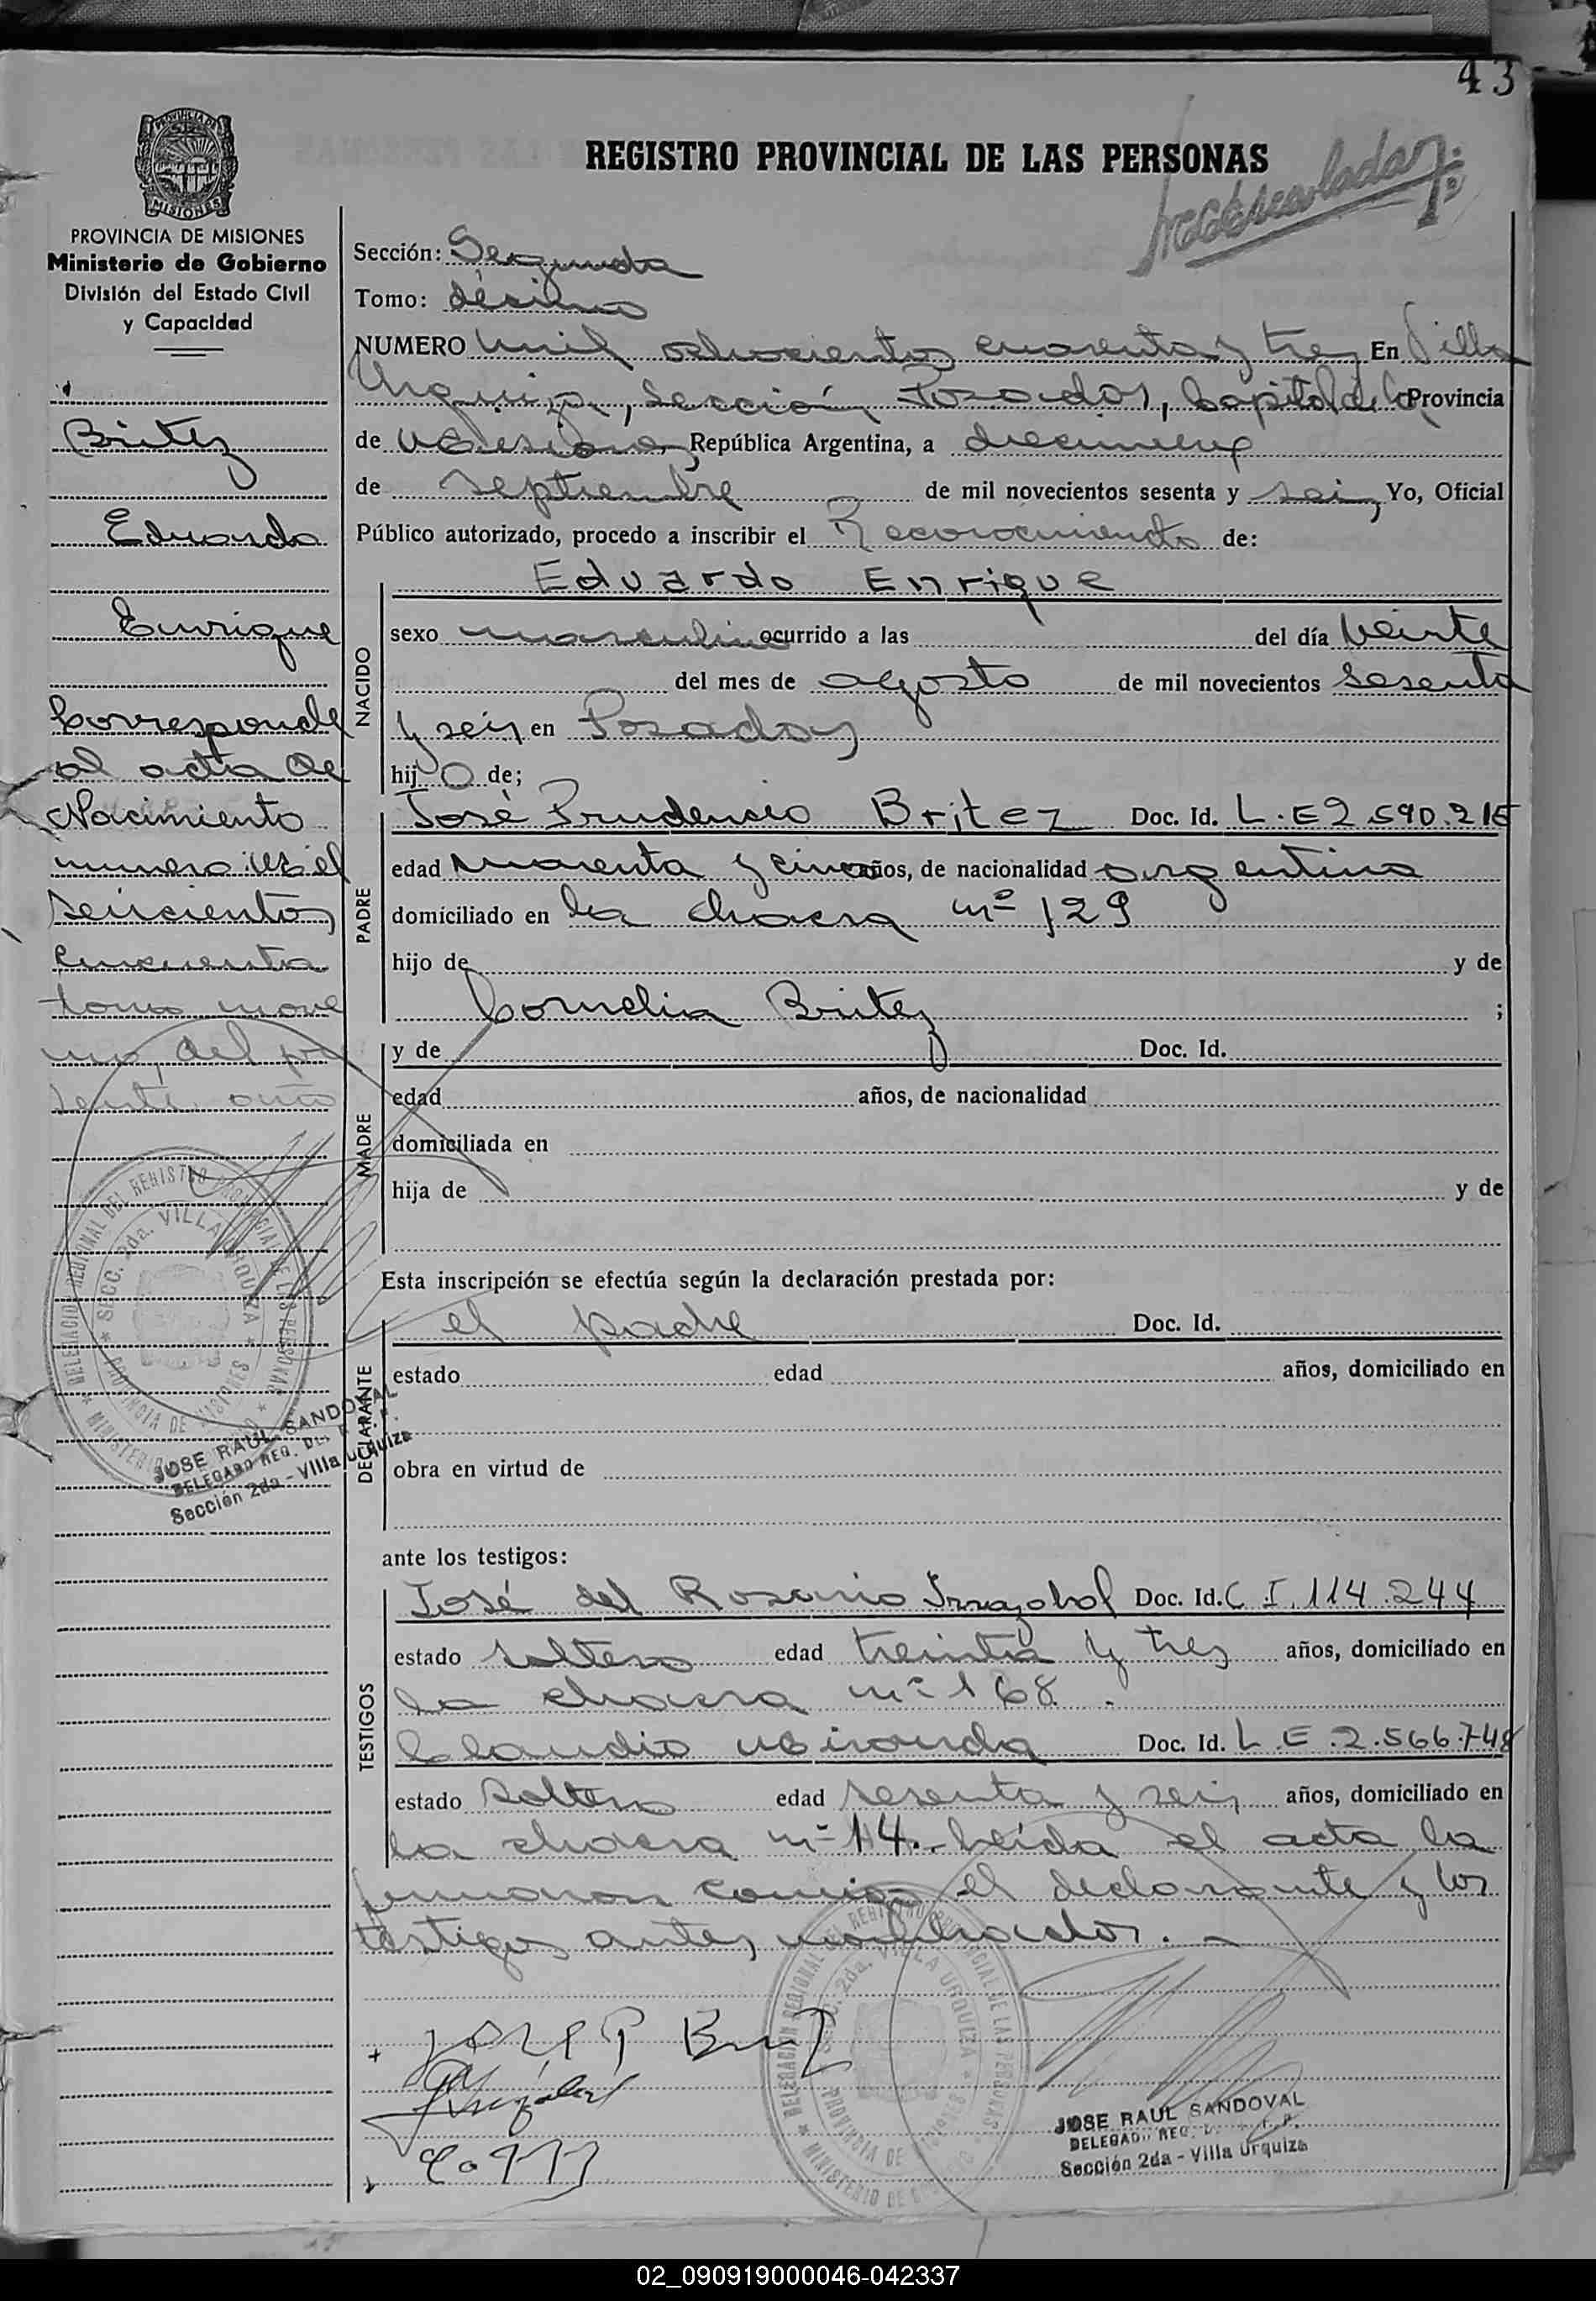 43
REGISTRO PROVINCIAL DE LAS PERSONAS
PROVINCIA DE MISIONES
Ministerio de Gobierno
División del Estado Civil
y Capacidad
Britez
Eduardo
Enrique
Corresponde
al acta de
Nacimiento
numero Mil
seiscientos
cincuenta
tomo nove
no, del pre
sente año
Sección: Segunda
Tomo: décimo
NUMERO mil ochocientos cuarenta y tres En Villa
Urquiza, Sección Posadas, Capital de la Provincia
de Misiones, República Argentina, a diecinueve
de septiembre de mil novecientos sesenta y seis, Yo, Oficial
Público autorizado, procedo a inscribir el Reconocimiento de:
NACIDO
Eduardo Enrique
sexo masculino ocurrido a las del día veinte
del mes de agosto de mil novecientos sesenta
y seis en Posadas
hijo de;
PADRE
José Prudencio Britez Doc. Id. L.E 2.590.215
edad cuarenta y cinco años, de nacionalidad argentina
domiciliado en la chacra nº 129
hijo de y de
Cornelia Britez ;
MADRE
y de Doc. Id.
edad años, de nacionalidad
domiciliada en
hija de y de
Esta inscripción se efectúa según la declaración prestada por:
DECLARANTE
el padre Doc. Id.
estado edad años, domiciliado en
obra en virtud de
ante los testigos:
TESTIGOS
José del Rosario Irrazabal Doc. Id. C.I. 114.244
estado soltero edad treinta y tres años, domiciliado en
la chacra nº 168.
Claudio Miranda Doc. Id. L.E. 2.566.748
estado soltero edad sesenta y seis años, domiciliado en
la chacra nº 14. Leída el acta la
firmaron conmigo el declarante y los
testigos antes nombrados.
JOSE RAUL SANDOVAL
DELEGADO REG.
Sección 2da - Villa Urquiza
JOSE RAUL SANDOVAL
DELEGADO REG.
Sección 2da - Villa Urquiza
02_090919000046-042337